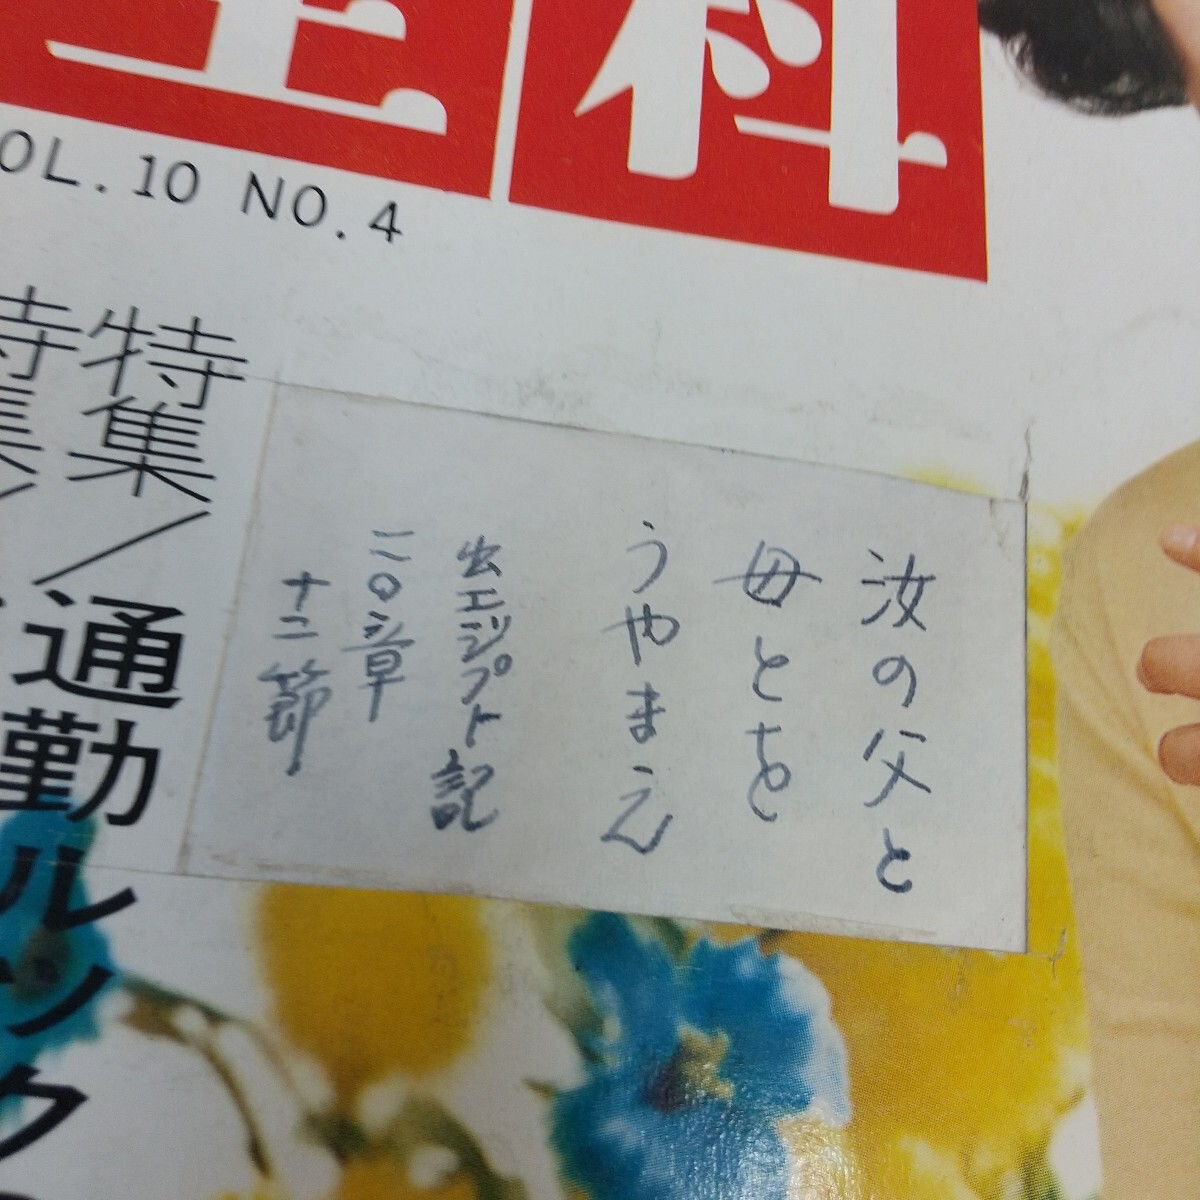 全科
VOL. 10 NO. 4
特集/通勤ルック
特集/
汝の父と
母とを
うやまえ
出エジプト記
二〇章
十二節